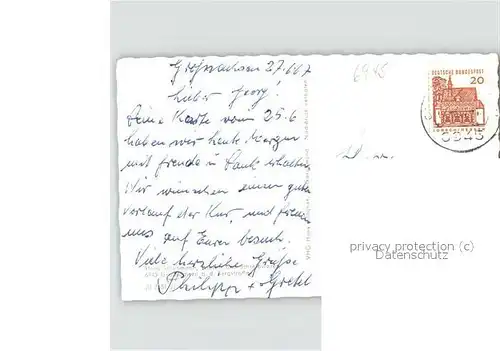 Großsachsen 27.6.67
6945
Lieber Georg!
Deine Karte vom 25.6
haben wir heute Morgen
mit Freude u Dank erhalten
Wir wünschen einen guten
Verlauf der Kur, und freuen
uns auf Euren besuch.
Viele herzliche Grüße
Philipp + Gretel
DEUTSCHE BUNDESPOST
20
6945
privacy protection (c)
Datenschutz